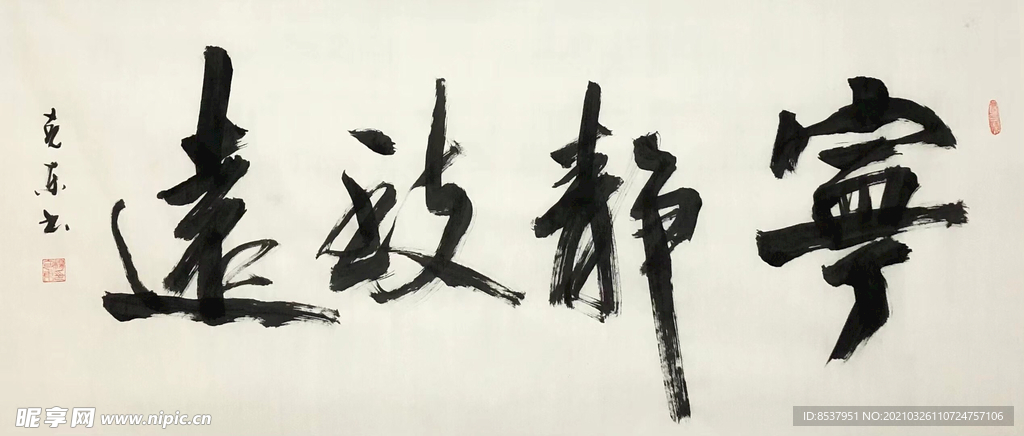 寧靜致遠
克東书
昵享网 www.nipic.cn
ID:8537951 NO:20210326110724757106